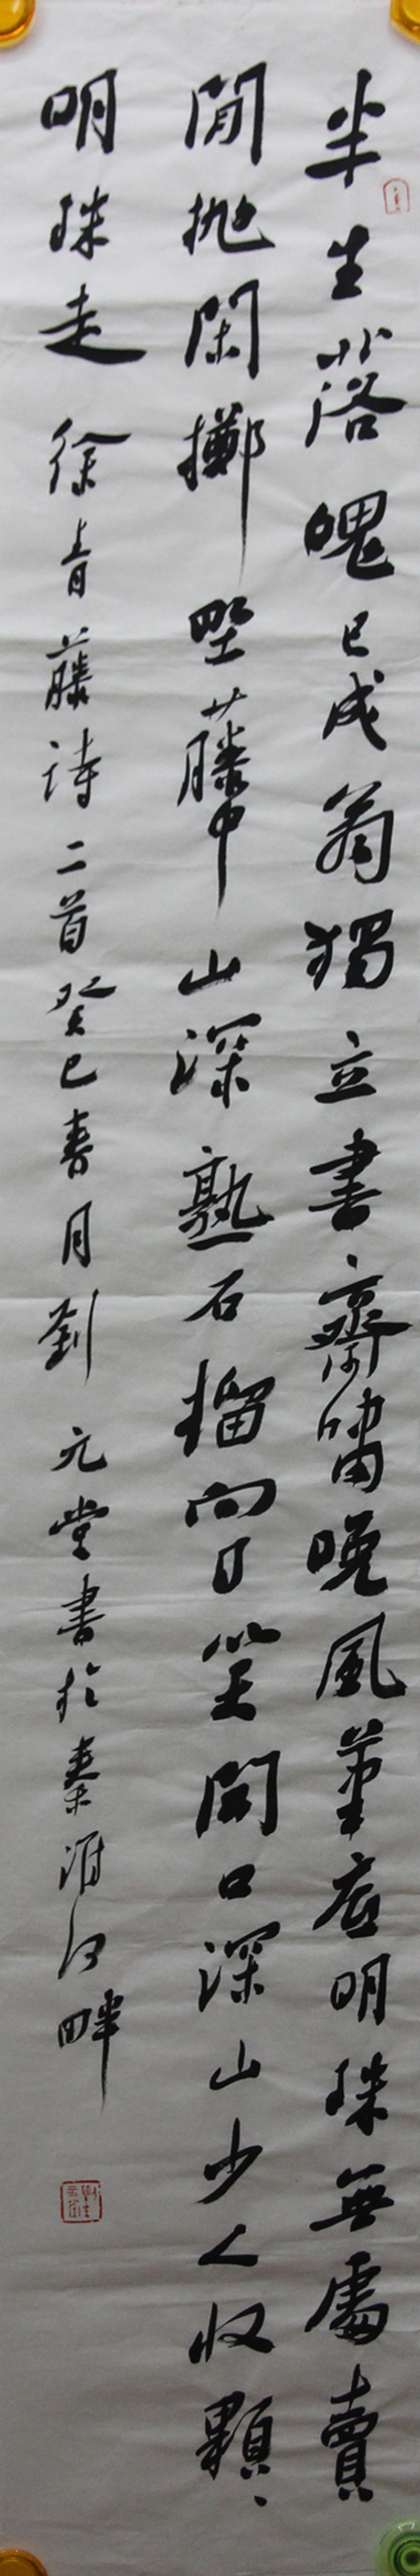 半生落魄已成翁獨立書齋嘯晚風筆底明珠無處賣
閒拋閑擲野藤中山深熟石榴向日笑開口深山少人收顆、
明珠走 徐青藤詩二首癸巳春月劉元堂書於秦淮河畔